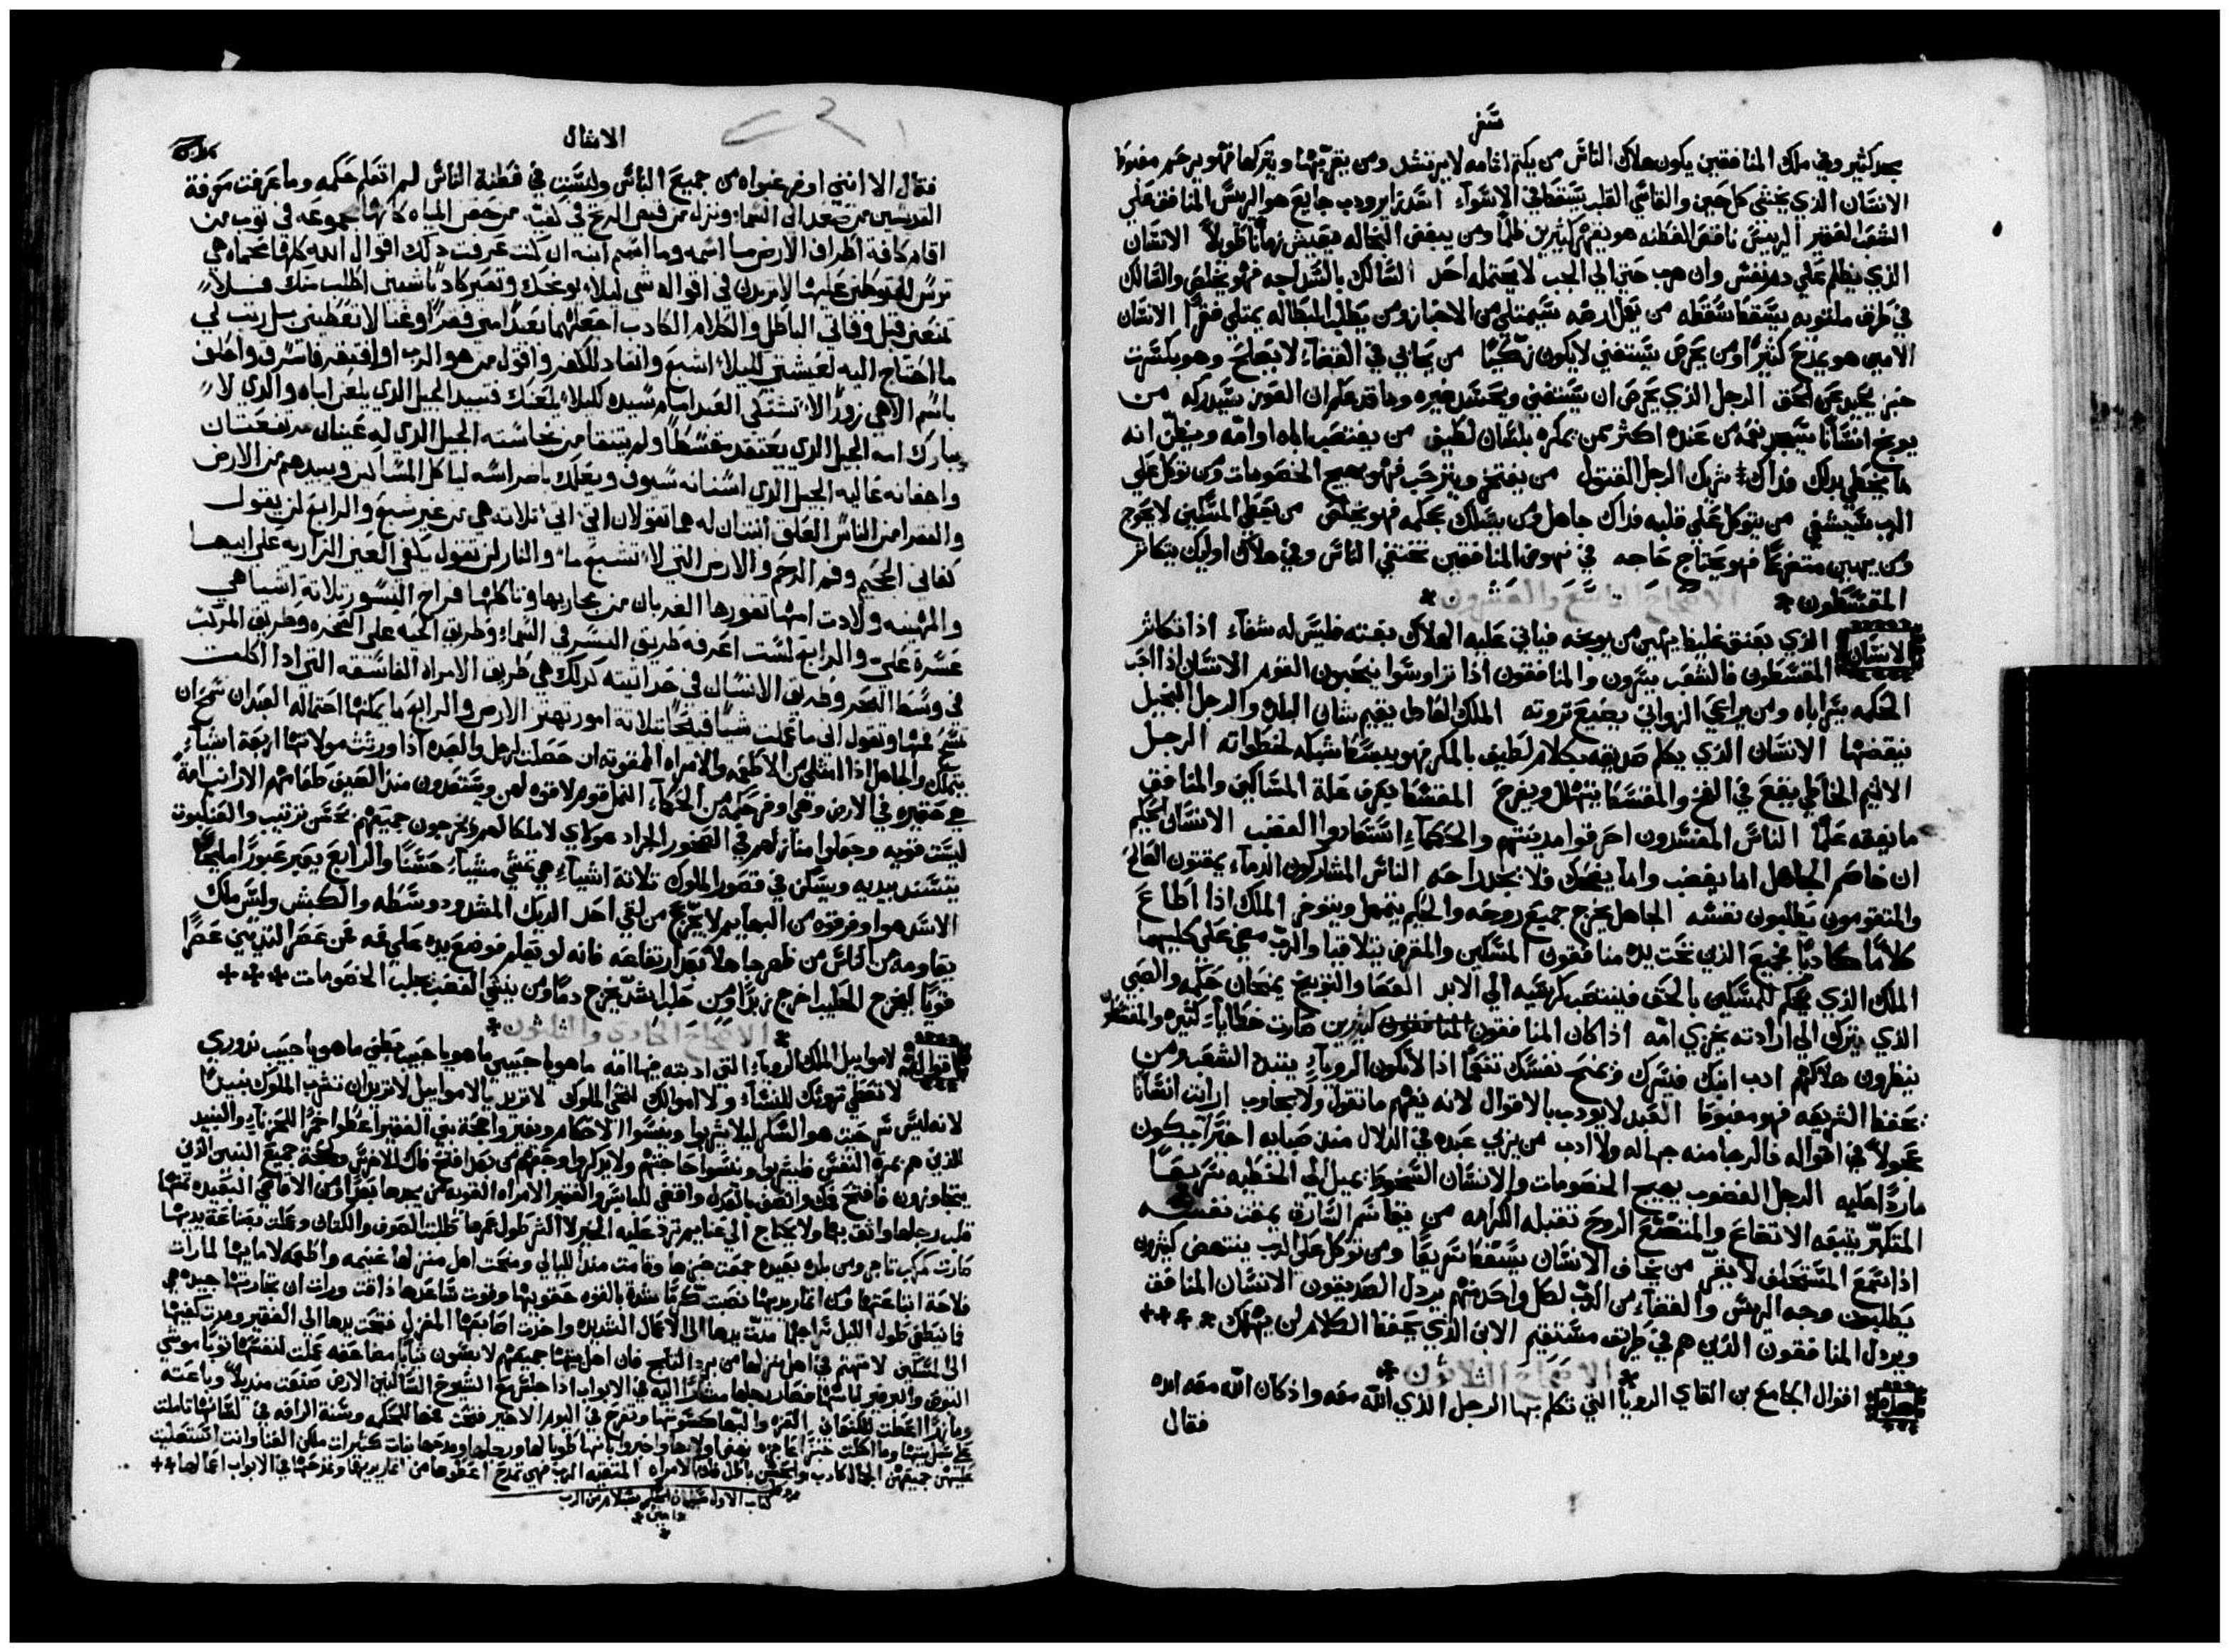 سفر
مجد كثير وفي ملك المنافقين يكون هلاك الناس من يكتم اثامه لا يرتشد ومن يقر بها ويتركها فهو يرحم مغبوط
الانسان الذي يخشي كل حين والقاسي القلب يسقط في الاسواء اسد يزاير ودب جايع هو الريس المنافق علي
الشعب الفقير الرييس ناقص الفطنه هو يقهر كثيرين ظلما ومن يبغض البخاله فيعيش زمانا طويلا الانسان
الذي يظلم علي دم نفس وان هرب حتي الي الجب لا يحتمله احد السالك بالسداجه فهو يخلص والسالك
في طرق ملتويه يسقط سقطه من يعمل ارضه سيمتلي من الاخباز ومن يطلب البطاله يمتلي فقرا الانسان
الامين هو يمدح كثيرا ومن يحرص يستغني لا يكون زكيا من يحابي في القضاء لا يصلح وهو بكسرت
خبز يحيد عن الحق الرجل الذي يحرص ان يستغني ويحسد غيره وما قد علم ان العوز سيدركه من
يوبخ انسانا سيجد نعمه من عنده اكثر ممن يمكره بلسان لطيف من يغتصب اباه او امه ويظن انه
ما يخطي بدلك فداك شريك الرجل القتول من يفتخر ويترحب فهو يهيج الخصومات ومن توكل علي
الرب سيشفي من يتوكل علي قلبه فداك جاهل ومن يسلك بحكمه فهو يخلص من يعطي المسكين لا يحوج
ومن يهين متضرعا فهو يحتاج حاجه في نهوض المنافقين تختشي الناس وفي هلاك اوليك يتكاثر
المقسطون * الاصحاح التاسع والعشرون *
الانسان الذي بعنق غليظ يهين من يوبخه فياتي عليه الهلاك بغته فليس له شفاء اذا تكاثر
المقسطون فالشعب يسرون والمنافقون اذا تراوسوا ينتحبون القوم الانسان اذا احب
الحكمه يسر اباه ومن يراعي الزواني يضيع ثروته الملك العادل يقيم شان البلد والرجل البخيل
ينقضها الانسان الذي يكلم صديقه بكلام لطيف بالمكر فهو يبسط شبكه لخطواته الرجل
الاثيم الخاطي يقع في الفخ والمقسط يتهلل ويفرح المقسط يعرف علة المساكين والمنافق
ما يفقه علما الناس المفسدون احرقوا مدينتهم والحكماء استعادوا الغضب الانسان الحكيم
ان خاصم الجاهل اما يغضب واما يضحك فلا يجد راحه الناس المشاركون الدماء يمقتون الصالح
والمتقومون يطلبون نفسه الجاهل يخرج جميع روحه والحكيم يتمهل ويتوخر الملك اذا اطاع
كلاما كاذبا فجميع الذين تحت يده منافقون المسكين والمقرض يتلاقيا والرب مضي علي كليهما
الملك الذي يحكم للمسكين بالحق فينتصب كرسيه الي الابد العصا والتوبيخ يمنحان حكمه والصبي
الذي يترك الي ارادته يخزي امه اذا كان المنافقون كثيرين صارت خطاياء كثيره والمقسطون
ينظرون هلاكهم ادب ابنك فيسرك ويمنح نفسك تنعما اذا لا تكون الروياء يتبدد الشعب ومن
يحفظ الشريعه فهو مغبوط العبد لا يودب بالاقوال لانه يفهم ما تقول ولا يجاوب ارايت انسانا
عجولا في اقواله فالرجا منه جهاله ولا ادب من يربي عبده في الدلال منذ صبايه اخيرا سيكون
ماردا عليه الرجل الغضوب يهيج الخصومات والانسان السخوط يميل الي الخطيه سريعا
المتكبر يتبعه الاتضاع والمتضع الروح تقبله الكرامه من يقاسم السارق يمقت نفسه
اذا يسمع المستحلف لا يقر من يخاف الانسان يسقط سريعا ومن توكل علي الرب ينتهض كثيرون
يطلبون وجه الريس والقضاء من الرب لكل واحد منهم يردل الصديقون الانسان المنافق
ويردل المنافقون الذين هم في طريق مستقيم الابن الذي يحفظ الكلام لن يهلك ****
* الاصحاح الثلاثون *
هذه اقوال الجامع بن القاي الرويا التي تكلم بها الرجل الذي الله معه واذ كان الله معه ايده
فقال
الامثال
فقال الا انني اوفر غباوه من جميع الناس وليست في فطنة الناس لم اتعلم حكمه وما عرفت معرفة
القديسين من صعد الى السماء ونزل من قبض الريح في كفيه من حصر المياه كانها مجموعه في ثوب من
اقام كافة اطراف الارض ما اسمه وما اسم ابنه ان كنت عرفت ذلك اقوال الله كلها محماه هي
ترس للمتوكلين عليها لا تزيدن في اقواله شي ليلا يوبخك وتصير كادبا شيين اطلب منك فلا
تمنعني قبل وفاتي الباطل والكلام الكادب اجعلهما بعيدا مني فقرا وغنا لا تعطيني بل رتب لي
ما احتاج اليه لعيشتي لكيلا اشبع وانقاد للكفر واقول من هو الرب او افتقر فاسرق واحلف
باسم الاهي زورا لا تشتكي العبد امام سيده لكيلا يلعنك فتبيد الجيل الذي يلعن اباه والذي لا
يبارك امه الجيل الذي يعتقد مقسطا ولم يتنقا من نجاسته الجيل الذي له عينان مرتفعتان
واجفانه عاليه الجيل الذي اسنانه سيوف ويعلك باضراسه لياكل المساكين ويبيدهم من الارض
والفقرا من الناس العلق ابنتان له هما تقولان ايتي ايتي ثلاثه هي من غير شبع والرابع لن يقول
كفاني الجحيم وفم الرحم والارض التي لا تشبع ماء والنار لن تقول يكفي العين الزاريه على ابيها
والمهينه ولادت امها تغورها الغربان من مجاريها وتاكلها فراخ النسور ثلاثة اشيا هي
عسرة علي والرابع لست اعرفه طريق النسر في السماء وطريق الحيه على الصخره وطريق المركب
في وسط البحر وطريق الانسان في حداثيته كذلك هي طريق الامراه الفاسقه التي اذا اكلت
تمسح فمها وتقول اني ما عملت شيا قبيحا بثلاثة امور تهتز الارض والرابع ما يمكنها احتماله العبد ان
يتملك والجاهل اذا امتلي من الاطعمه والامراه الممقوته ان حصلت لرجل والعبده اذا ورثت مولاتها اربعة اشياء
هي حقيره في الارض وهي اوفر حكمه من الحكماء النمل قوم لا قوه لهم ويستعدون منذ الصيف طعامهم الارانب امة
ليست قويه وجعلوا منازلهم في الصخور الجراد هوذاي لا ملكا لهم ويخرجون جميعهم بحسن ترتيب والعنكبوت
يتسند بيديه ويسكن في قصور الملوك ثلاثة اشياء هي تمشي مشياء حسنا والرابع يعبر عبورا مليحا
الاسد هو اوفر قوه من البهايم لا يجزع من لقي احد الديك المشدود وسطه والكبش وليس ملك
يقاومه من الناس من ظهر جاهلا بعد ارتفاعه فانه لو تعلم فوضع يده علي فمه من عصر الثديين عصرا
قويا ليخرج الحليب اخرج زبدا ومن حلب اشد يخرج دما ومن ينشي الغضب يجلب الخصومات ***
* الاصحاح الحادي والثلثون *
اقوال لامواييل الملك الروياء التي ادبته فيها امه ما هو يا حبيبي ما هو يا حبيب بطني ما هو يا حبيب نزوري
لا تعطي ثروتك للنساء ولا اموالك لمحي الملوك لا تريد يا لامواييل لا تريد ان تشرب الملوك نبيدا
لانه ليس سر حيث هو السكر ليلا يشربوا وينسوا الاحكام ويغيروا حجة بني الفقير اعطوا خمرا للحزناء والنبيد
للذين هم بمرة النفس فليشربوا وينسوا حاجتهم ولا يدكروا وجعهم من بعد افتح فاك للاخرس ولحجة جميع البنين الذين
يتجاوزون فافتح فمك وانصف بالعدل واقضي للبايس والفقير الامراه القويه من يجدها بعيدا ومن الاقاصي البعيده ثمنها
قلب رجلها واثق بها ولا يحتاج الي غنايم ترد عليه الخير لا الشر طول عمرها طلبت الصوف والكتان وعملت بصناعة يديها
صارت كمركب تاجر ومن بلده بعيده جمعت خبزها وقامت منذ الليالي ومنحت اهل منزلها غنيمه واطعمه لامايها لما رات
فلاحة ابتاعتها ومن اثمار يديها نصبت كرما شدت بالقوه حقويها وقوت ساعدها ذاقت ورات ان تجارتها جيده هي
فما ينطفي طول الليل سراجها مدت يدها الى الاعمال الشديده واخذت اصابعها المغزل فتحت يدها الى الفقير ومدت كفيها
الى المسكين لا تهتم في اهل منزلها من برد الثلج فان اهل بيتها جميعهم لابسون ثيابا مضاعفه عملت لنفسها ثوبا موشي
البوص والبرفير لباسها فصار رجلها مشارا اليه في الابواب اذا جلس مع الشيوخ السالبين الارض صنعت منديلا وباعته
ومازرا اعطت للكنعاني العزه والبها كسوتها وتفرح في اليوم الاخير فتحت فمها للحكمه وسنة الرافه في لسانها تاملت
علي سبل بيتها وما اكلت خبزا عاجزه بهض اولادها واخبروا بانها طوبا لها ورجلها ومدحها بنات كثيرات ملكن الغنا وانت استعليت
عليهن جميعهن الجمال كادب والحسن باطل فاما الامراه المتقيه الرب فهي تمدح اعطوها من اثمار يديها وتمدحها في الابواب اعمالها **
كتاب الاول سليمان الحكيم بسلام من الرب
* امين *